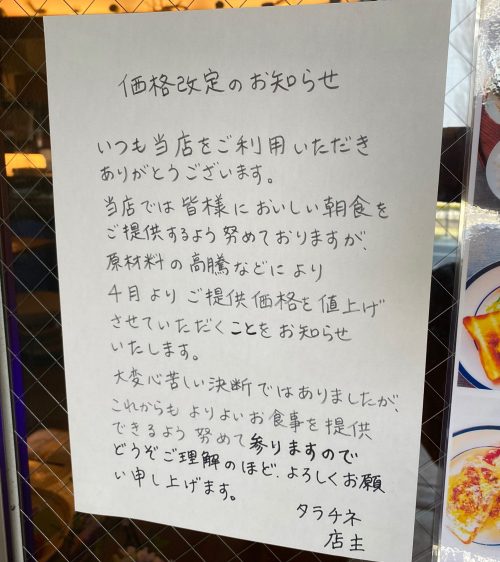 価格改定のお知らせ
いつも当店をご利用いただき
ありがとうございます。
当店では皆様においしい朝食を
ご提供するよう努めておりますが、
原材料の高騰などにより
4月よりご提供価格を値上げ
させていただくことをお知らせ
いたします。
大変心苦しい決断ではありましたが、
これからもよりよいお食事を提供
できるよう努めて参りますので
どうぞご理解のほど、よろしくお願
い申し上げます。
タラチネ
店主